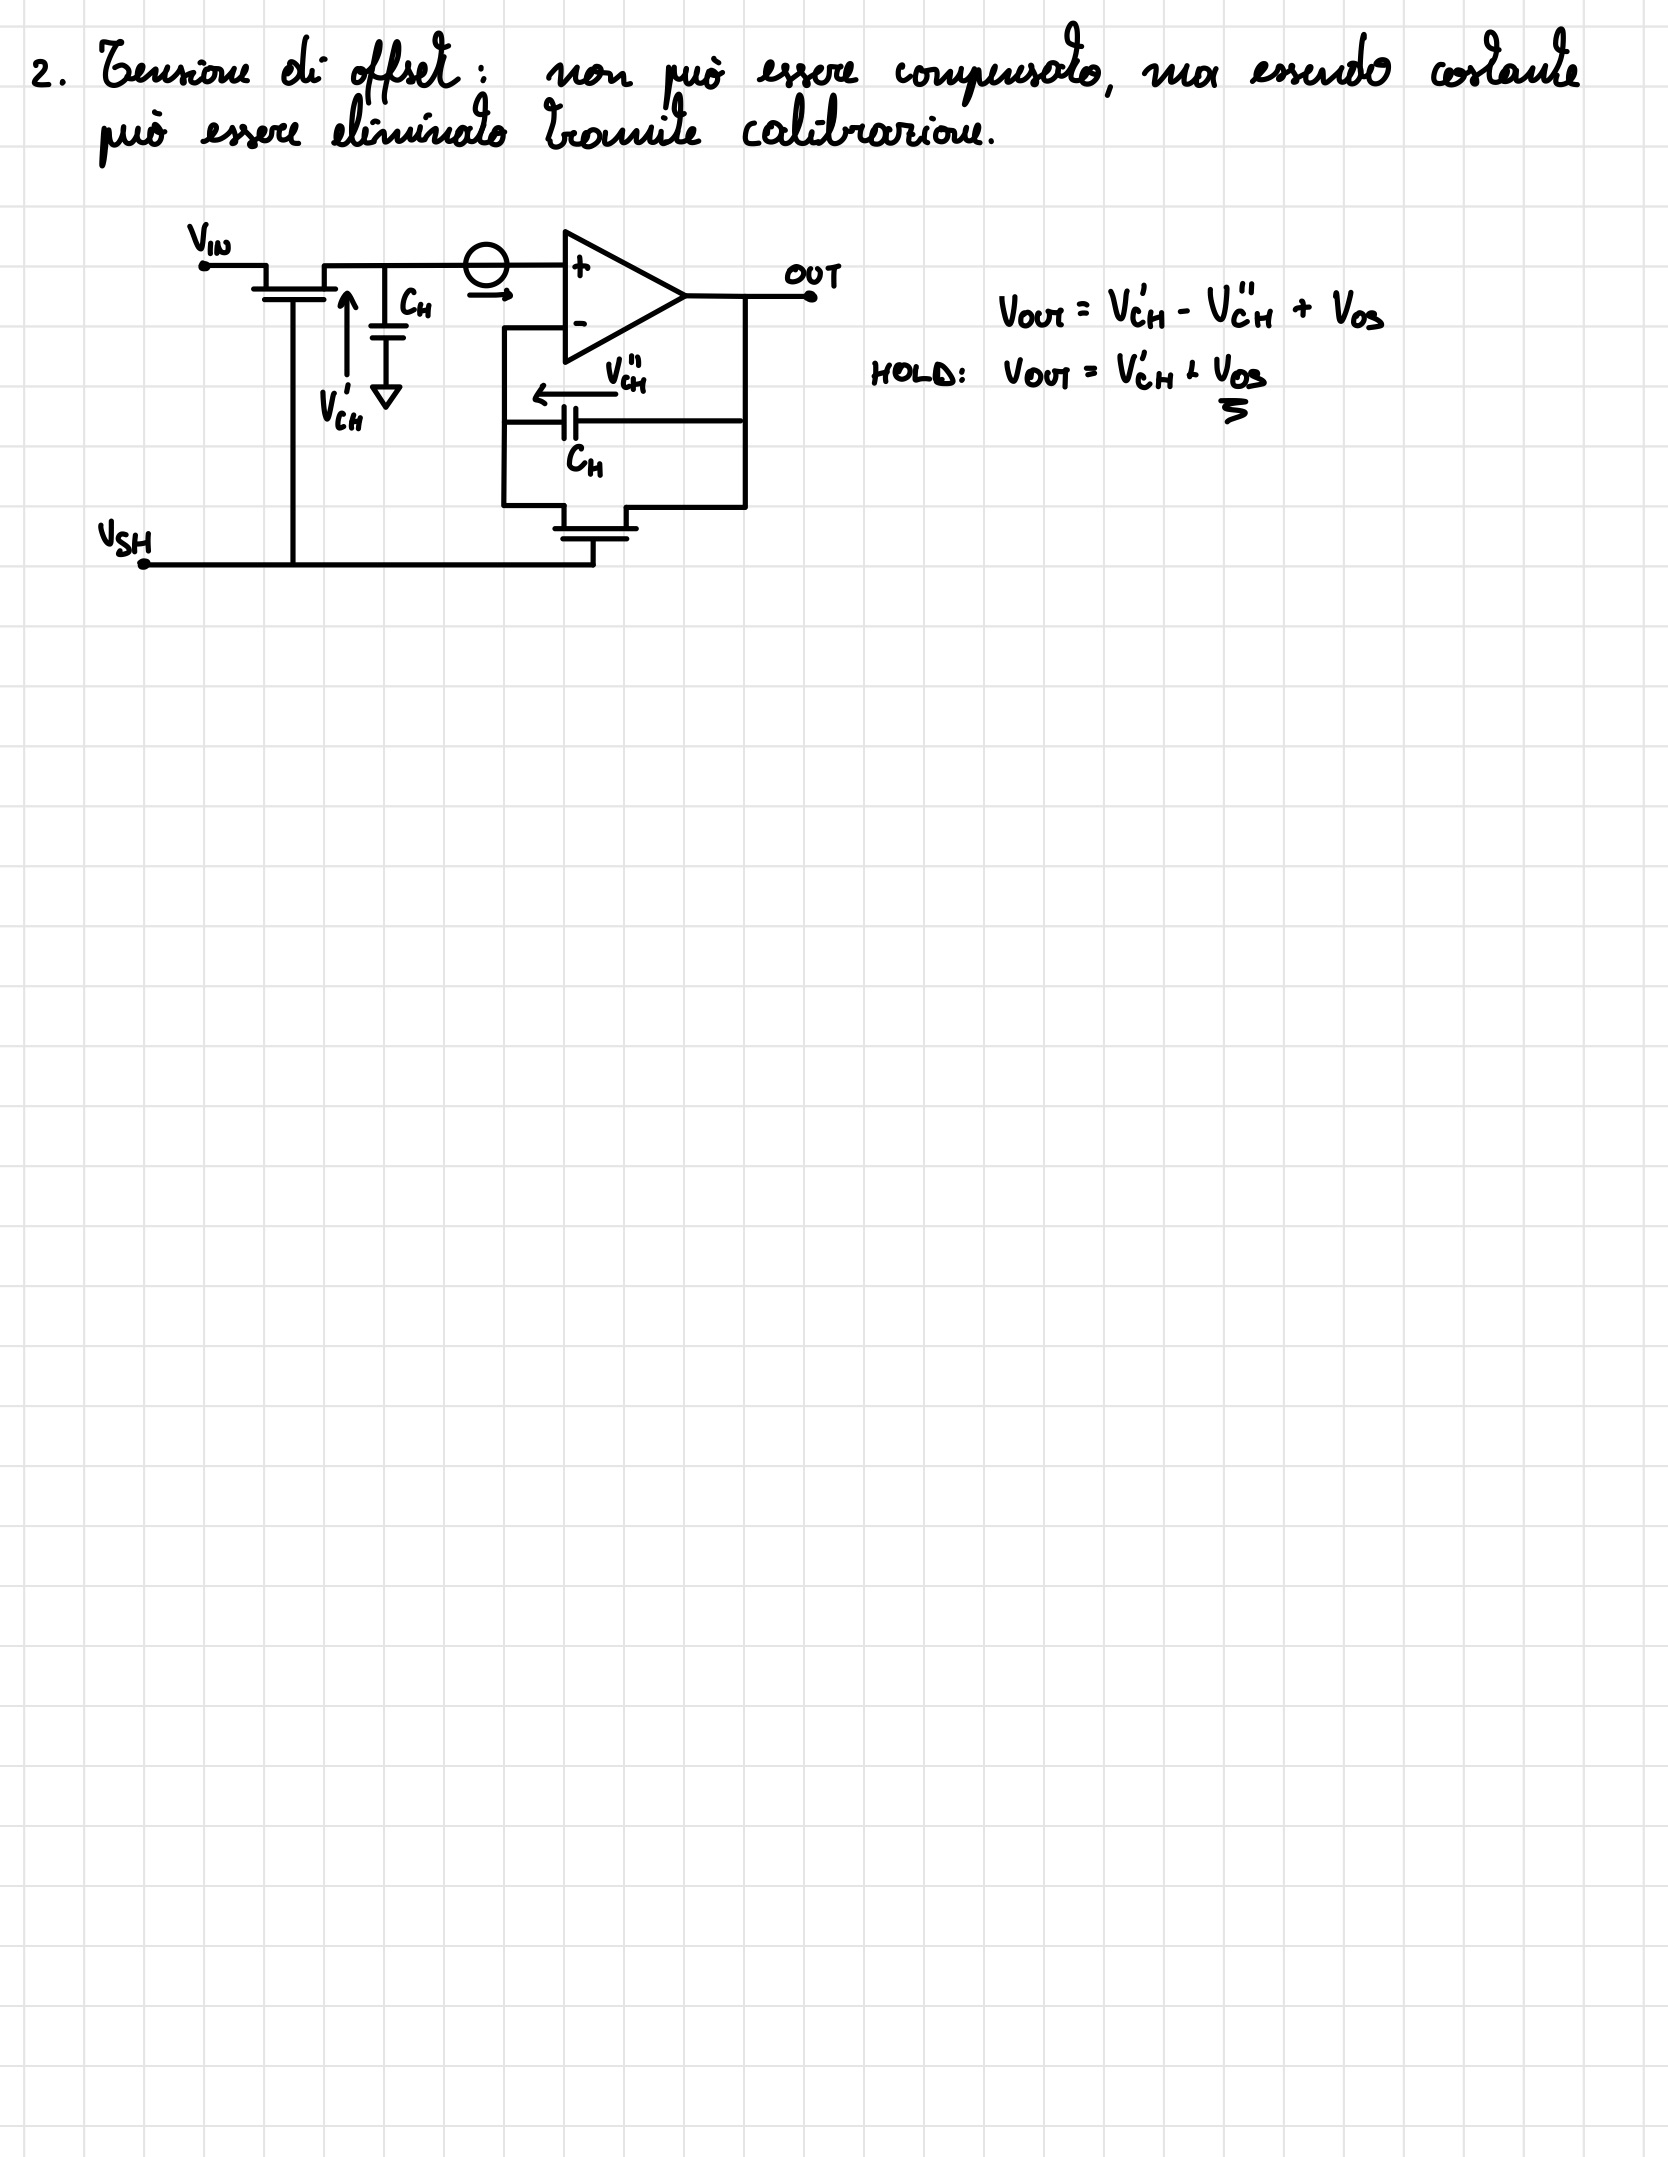 2. Tensione di offset: non può essere compensato, ma essendo costante
può essere eliminato tramite calibrazione.
V_IN
+
OUT
C_H
V_OUT = V_CH' - V_CH'' + V_OS
-
V_CH''
HOLD: V_OUT = V_CH' + V_OS
V_CH'
C_H
V_SH